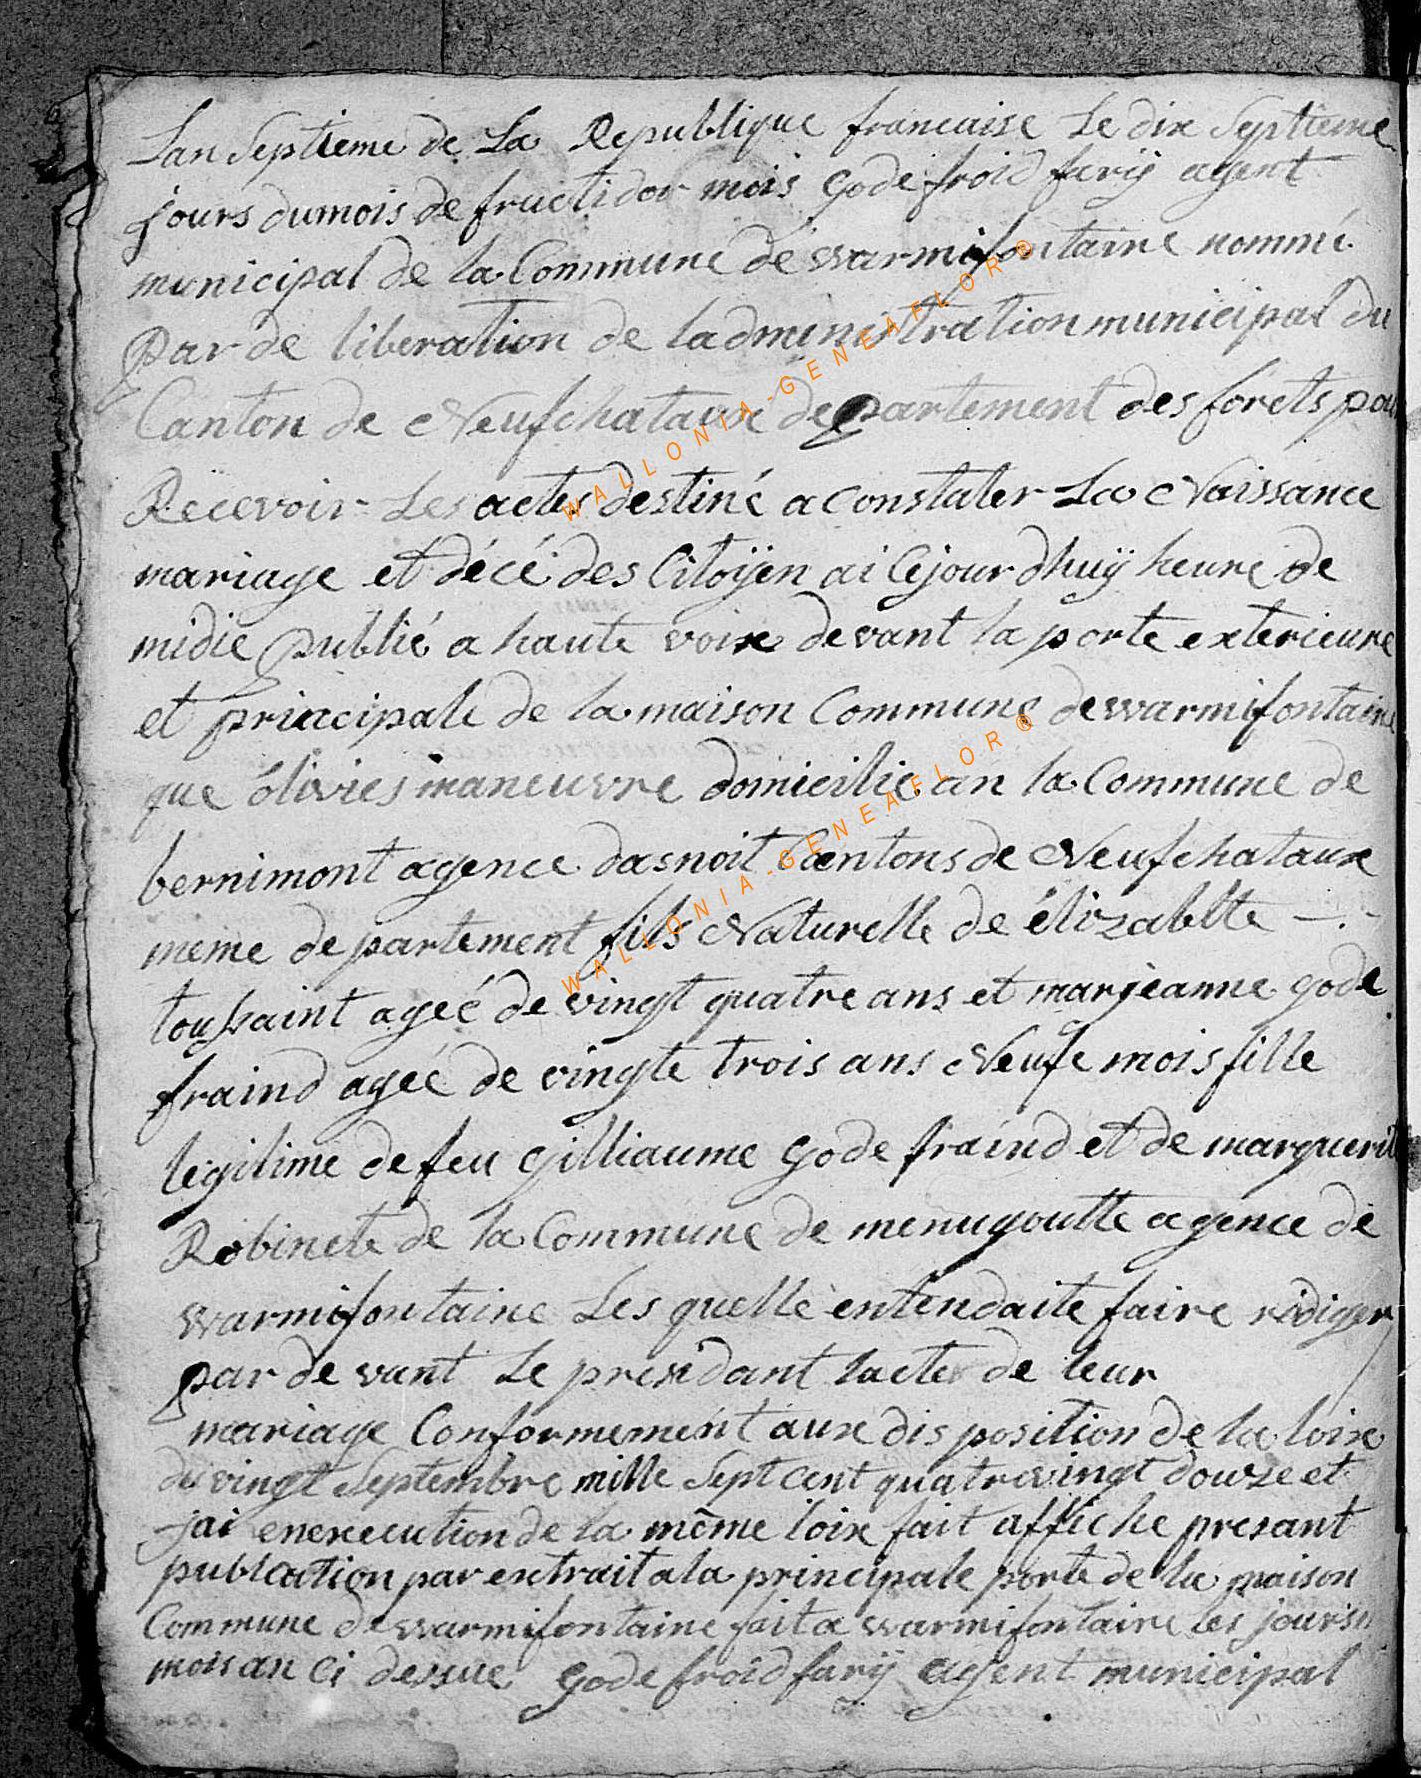 Lan Septieme de La Republique francaise Le dix Septieme
jours dumois de fructidor mois godefroid farÿ agent
municipal de la Commune de warmifontaine nommé
par de liberation de ladministration municipal du
Canton de Neufchataux departement des forets pou
Recevoir Les actes destiné a constater La Naissance
mariage et décé des Citoÿen ai Cejour dhuÿ heure de
midie publié a haute voix devant la porte exterieure
et principale de la maison Commune de warmifontaine
que olivies maneuvre domicilié an la Commune de
bernimont agence dasnoit Cantons de Neufchataux
meme departement fils Naturelle de élizabtte
toussaint ageé de vingt quatre ans et marjeanne gode
fraind ageé de vingte trois ans Neufe mois fille
legitime de feu gilliaume gode fraind et de marguerit
Robinete de la Commune de menugoutte agence de
warmifontaine Les quelle entendaite faire rediger
par de vant Le presidant lacte de leur
mariage Conformement aux disposition de la loix
du vingt Septembre mille Sept cent quatrevingt douze et
jai enexecution de la même loix fait affiche presant
publcation par extrait ala principale porte de la maison
Commune de warmifontaine fait a warmifontaire les jours
mois an ci dessue godefroid farÿ agent municipal
WALLONIA-GENEAFLOR®
WALLONIA-GENEAFLOR®